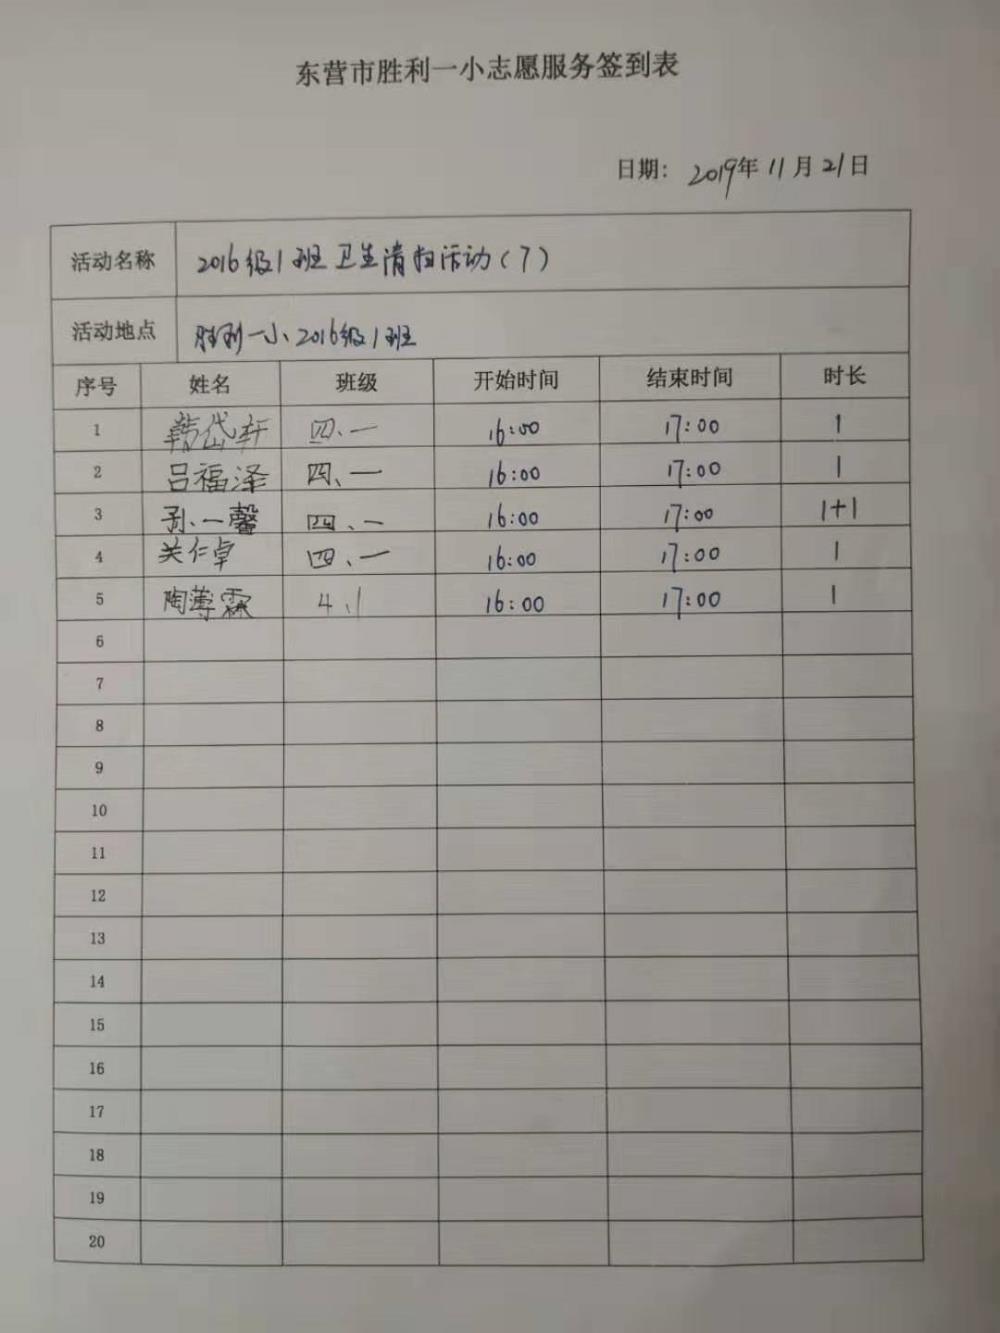 东营市胜利一小志愿服务签到表
日期: 2019年11月21日
活动名称 2016级1班卫生清扫活动(7)
活动地点 胜利一小2016级1班
序号 姓名 班级 开始时间 结束时间 时长
1 韩岱轩 四、一 16:00 17:00 1
2 吕福泽 四、一 16:00 17:00 1
3 孙一馨 四、一 16:00 17:00 1+1
4 关仁卓 四、一 16:00 17:00 1
5 陶 霖 4、1 16:00 17:00 1
6
7
8
9
10
11
12
13
14
15
16
17
18
19
20